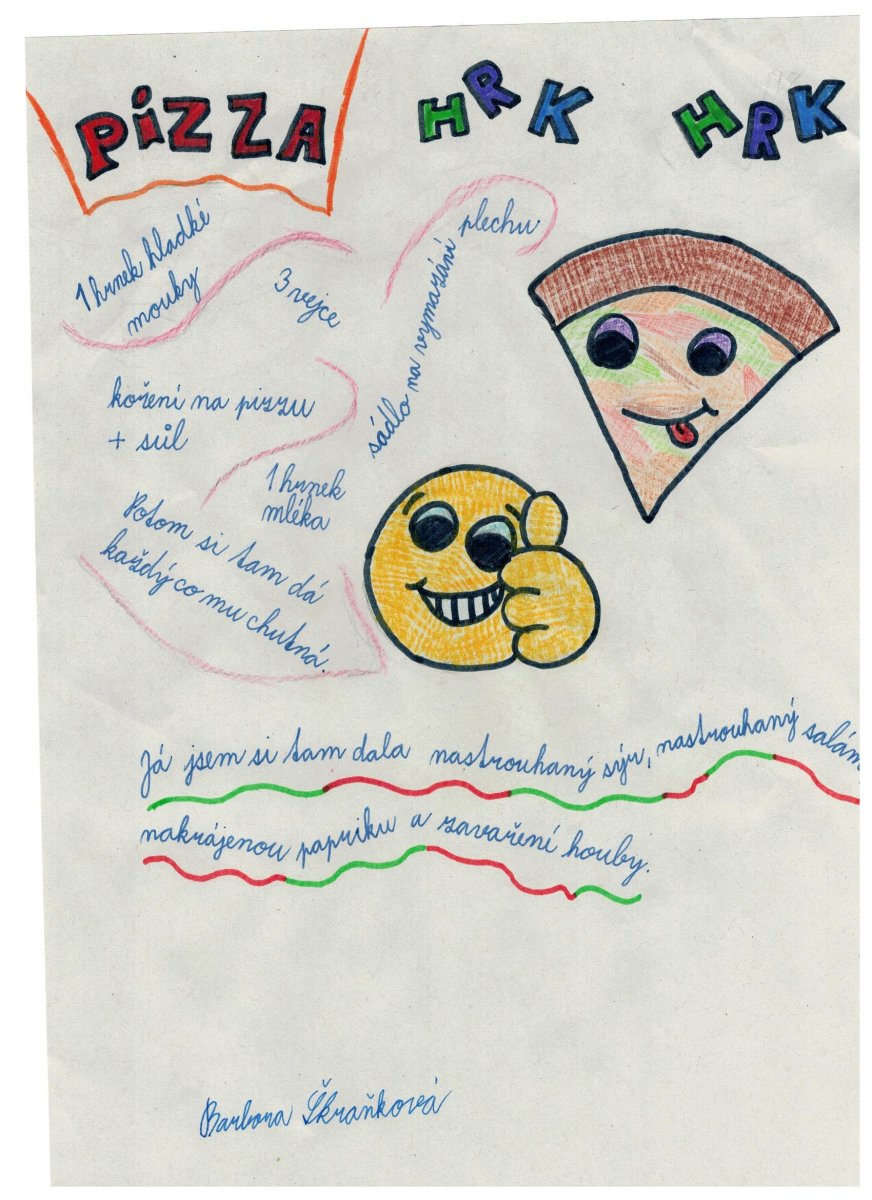 PIZZA HRK HRK
1 hrnek hladké
mouky
3 vejce
sádlo na vymazání plechu
koření na pizzu
+ sůl
1 hrnek
mléka
Potom si tam dá
každý co mu chutná.
Já jsem si tam dala nastrouhaný sýr, nastrouhaný salám,
nakrájenou papriku a zavaření houby.
Barbora Škraňková